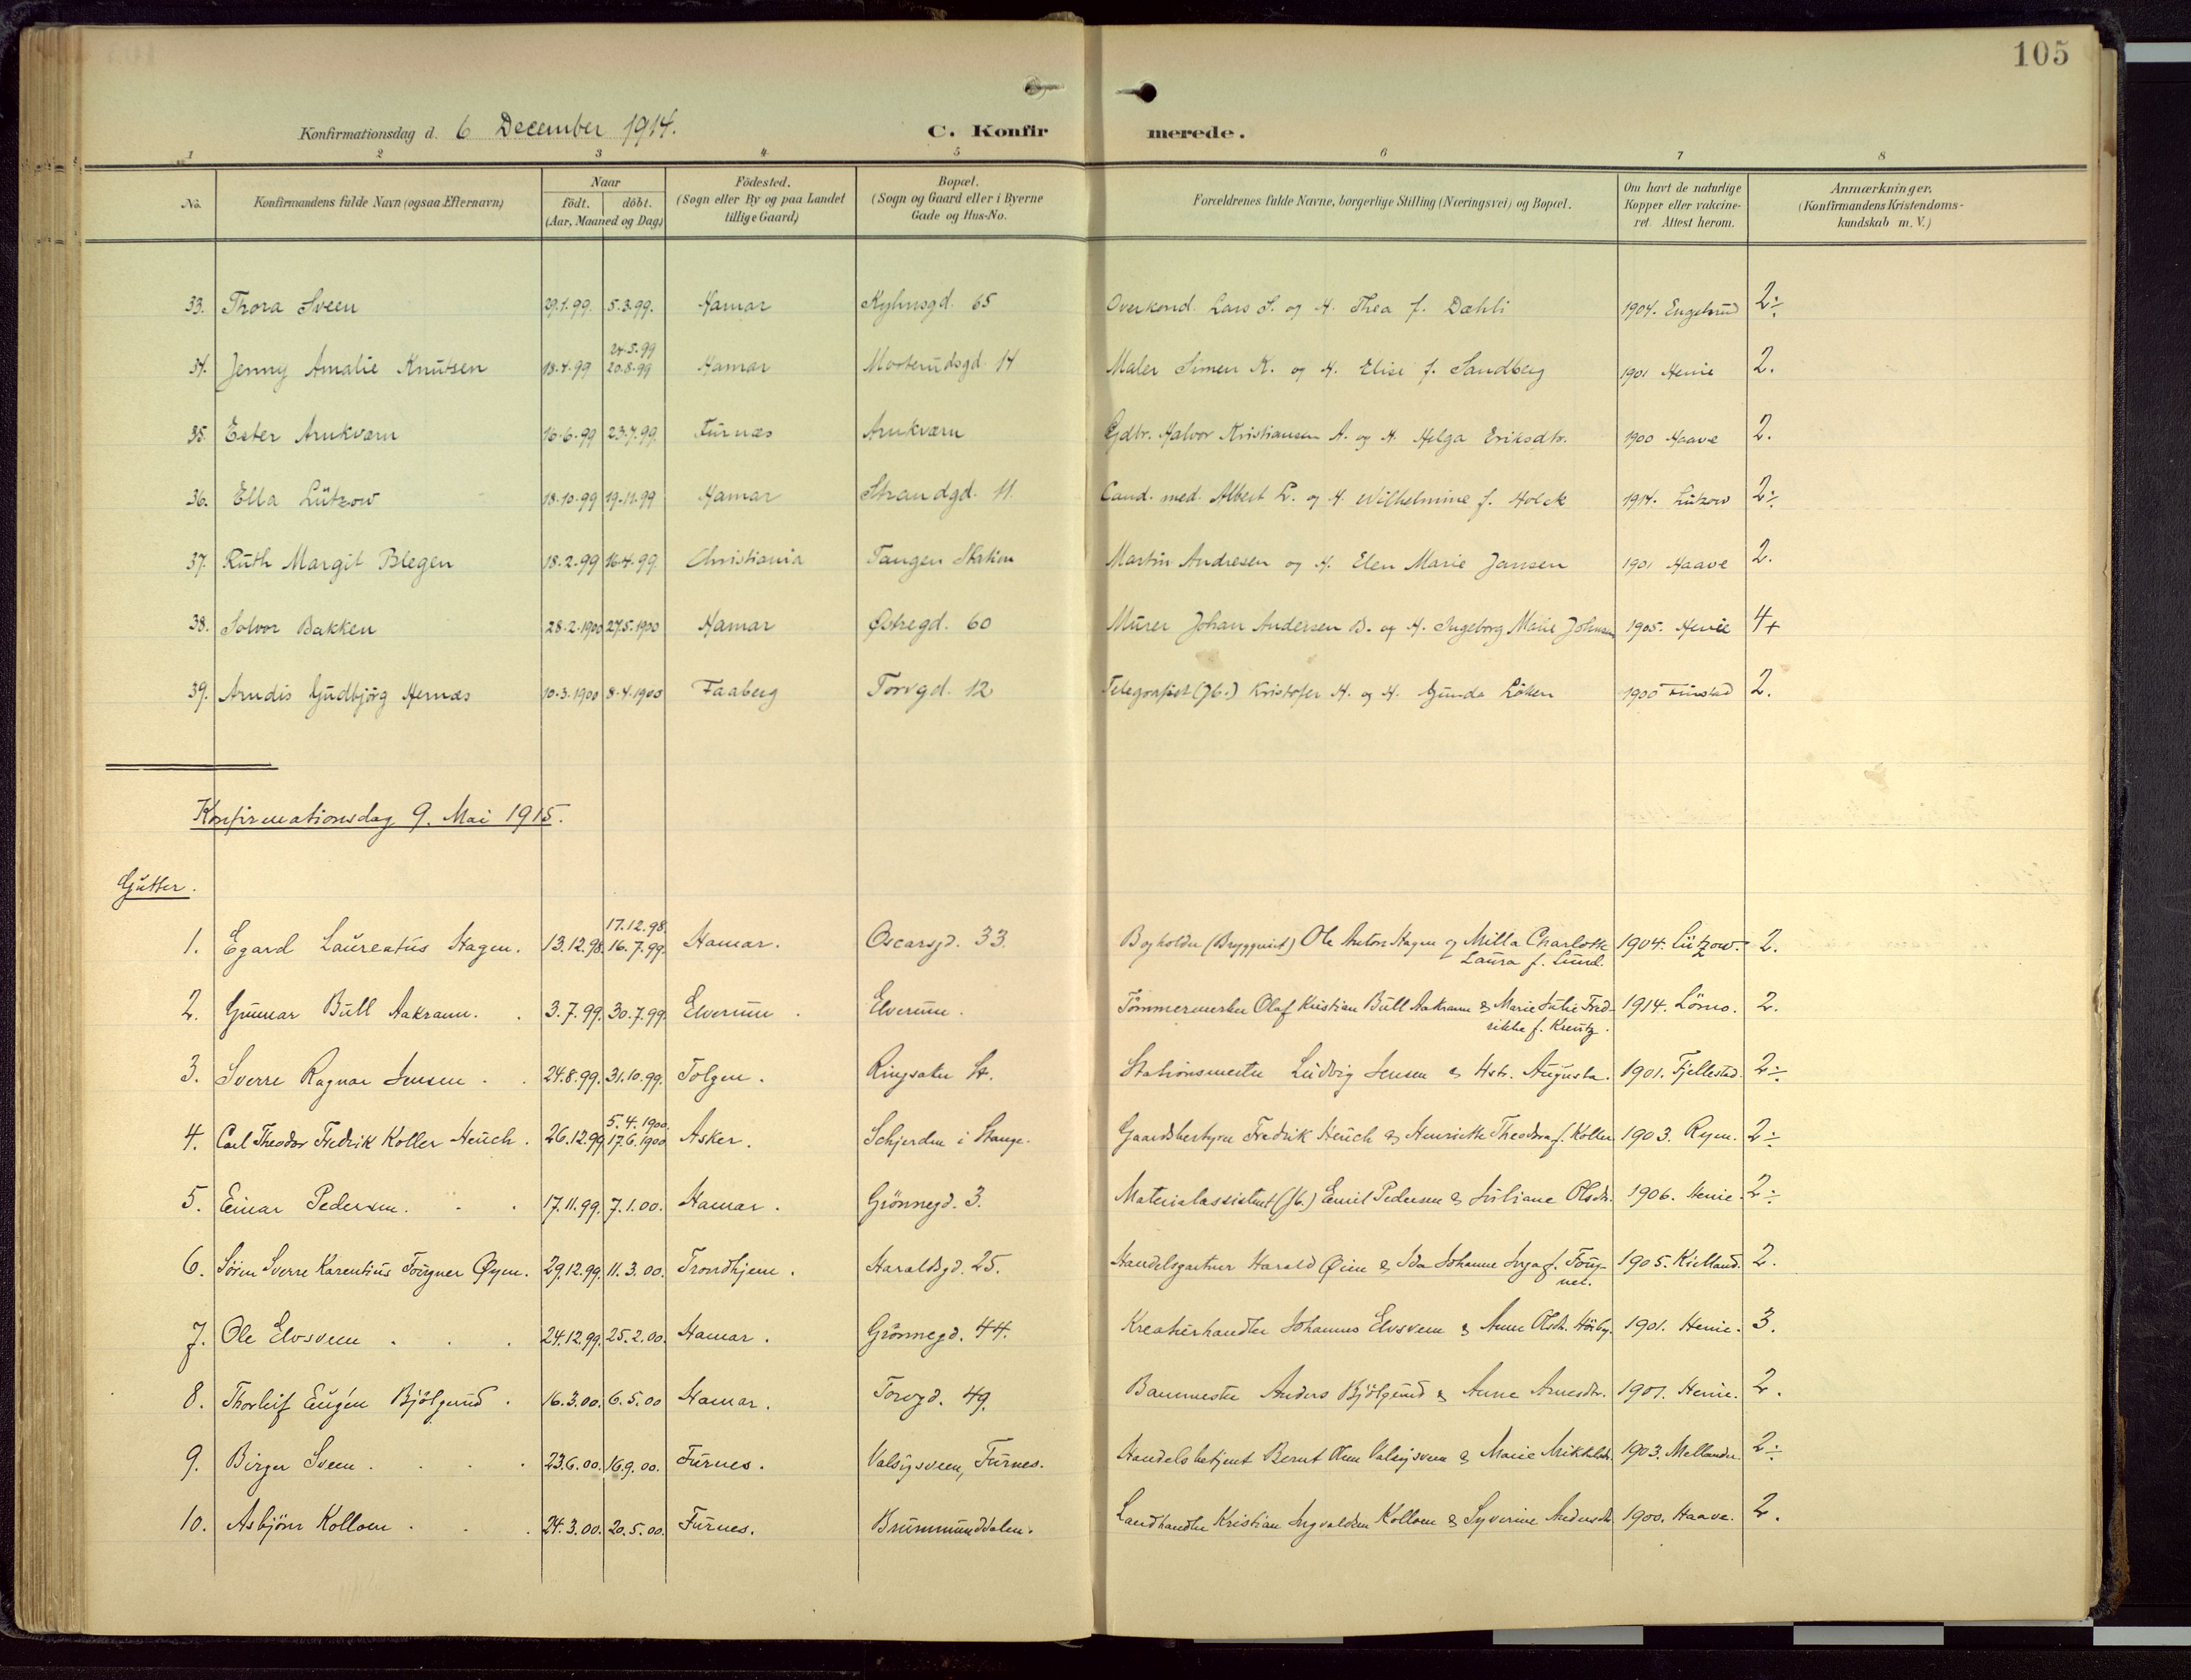 105
Konfirmationsdag d. 6 December 1914. C. Konfirmerede.
1 2 3 4 5 6 7 8
No. Konfirmandens fulde Navn (ogsaa Efternavn) Naar födt. döbt. (Aar, Maaned og Dag) Födested. (Sogn eller By og paa Landet tillige Gaard) Bopæl. (Sogn og Gaard eller i Byerne Gade og Hus-No. Forældrenes fulde Navne, borgerlige Stilling (Næringsvei) og Bopæl. Om havt de naturlige Kopper eller vakcineret. Attest herom. Anmærkninger. (Konfirmandens Kristendomskundskab m. V.)
33. Thora Sveen 29.1.99. 5.3.99. Hamar 65 Overkond. Lars S. og H. Thea f. Dæhli 1904. Engelsrud 2÷
34. Jenny Amalie Knutsen 18.4.99 24.5.99 20.8.99 Hamar Morterudsgd. 14 Maler Simen K. og H. Elise f. Sandberg 1901 Henie 2.
35. Ester Arnkværn 16.6.99 23.7.99. Furnæs Arnkværn Gdbr. Halvor Kristiansen A. og H. Helga Eriksdtr. 1900 Haave 2.
36. Ella Lützow 18.10.99 19.11.99 Hamar Strandgd. 11. Cand. med. Albert L. og H. Wilhelmine f. Holck 1914. Lützow 2÷
37. Ruth Margit Blegen 18.2.99 16.4.99. Christiania Tangen Station Martin Andresen og H. Elen Marie Jansen 1901 Haave 2.
38. Solvor Bakken 28.2.1900 27.5.1900 Hamar Østregd. 60 Murer Johan Andersen B. og H. Ingeborg Marie Johnsen 1905. Henie 4+
39. Arndis Gudbjörg Hernæs 10.3.1900 8.4.1900 Faaberg Torvgd. 12 Telegrafist (Jb.) Kristofer H. og H. Gunda Löken 1900 Finstad 2.
Konfirmationsdag 9. Mai 1915.
Gutter.
1. Egard Laureatus Hagen. 13.12.98. 17.12.98. 16.7.99. Hamar. Oscarsgd. 33. Bogholder Ole Anton Hagen og Milla Charlotte Laura f. Lund. 1904. Lützow. 2.
2. Gunnar Bull Aakrann. 3.7.99. 30.7.99. Elverum. Elverum. Tömmermerker Olaf Kristian Bull Aakrann & Marie Julie Fredrikke f. Kreutz. 1914. Lömo. 2.
3. Sverre Ragnar Jensen. 24.8.99. 31.10.99. Tolgen. Ringsaker St. Stationsmester Ludvig Jensen & Hstr. Augusta. 1901. Fjellestad. 2÷
4. Carl Theodor Fredrik Koller Heuch. 26.12.99 5.4.1900. 17.6.1900 Asker. Schjerden i Stange. Gaardsbestyrer Fredrik Heuch & Henriette Theodora f. Koller 1903. Ryen. 2÷
5. Einar Pedersen. 17.11.99. 7.1.00. Hamar. Grönnegd. 3. Materialassistent (Jb.) Emil Pedersen & Juliane Olsdtr. 1906. Henie. 2÷
6. Sören Sverre Karentius Tougner Øyen. 29.12.99. 11.3.00. Trondhjem. Haraldsgd. 25. Handelsgartner Harald Øien & Ida Johanne Inga f. Tougner. 1905. Kielland. 2.
7. Ole Elvsveen. 24.12.99. 25.2.00. Hamar. Grönnegd. 44. Kreaturhandler Johannes Elvsveen & Anne Olsdtr. 1901. Henie. 3.
8. Thorleif Eugén Bjölgerud. 16.3.00. 6.5.00 Hamar. Torvgd. 49. Banemester Anders Bjölgerud & Anne Arnesdtr. 1901. Henie. 2.
9. Birger Sveen. 23.6.00. 16.9.00. Furnes. Valsigsveen, Furnes. Handelsbetjent Bernt Olsen Valsigsveen & Marie Mikkelsdtr. 1903. Mellander. 2÷
10. Asbjörn Kolloen. 24.3.00. 20.5.00. Furnes. Brummunddalen. Landhandler Kristian Ingvaldsen Kolloen & Syverine Andersdtr 1900. Haave. 2.